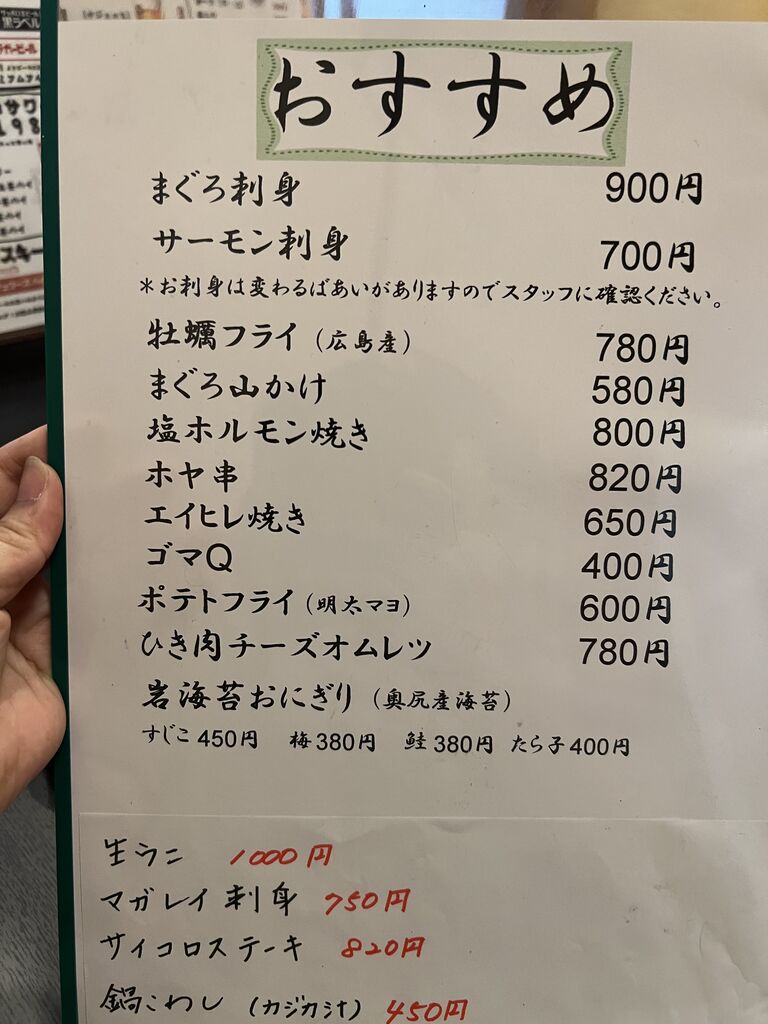 おすすめ
まぐろ刺身 900円
サーモン刺身 700円
＊お刺身は変わるばあいがありますのでスタッフに確認ください。
牡蠣フライ（広島産） 780円
まぐろ山かけ 580円
塩ホルモン焼き 800円
ホヤ串 820円
エイヒレ焼き 650円
ゴマQ 400円
ポテトフライ（明太マヨ） 600円
ひき肉チーズオムレツ 780円
岩海苔おにぎり（奥尻産海苔）
すじこ450円 梅380円 鮭380円 たら子400円
生うに 1000円
マガレイ刺身 750円
サイコロステーキ 820円
鍋こわし（カジカ汁） 450円
黒ラベル